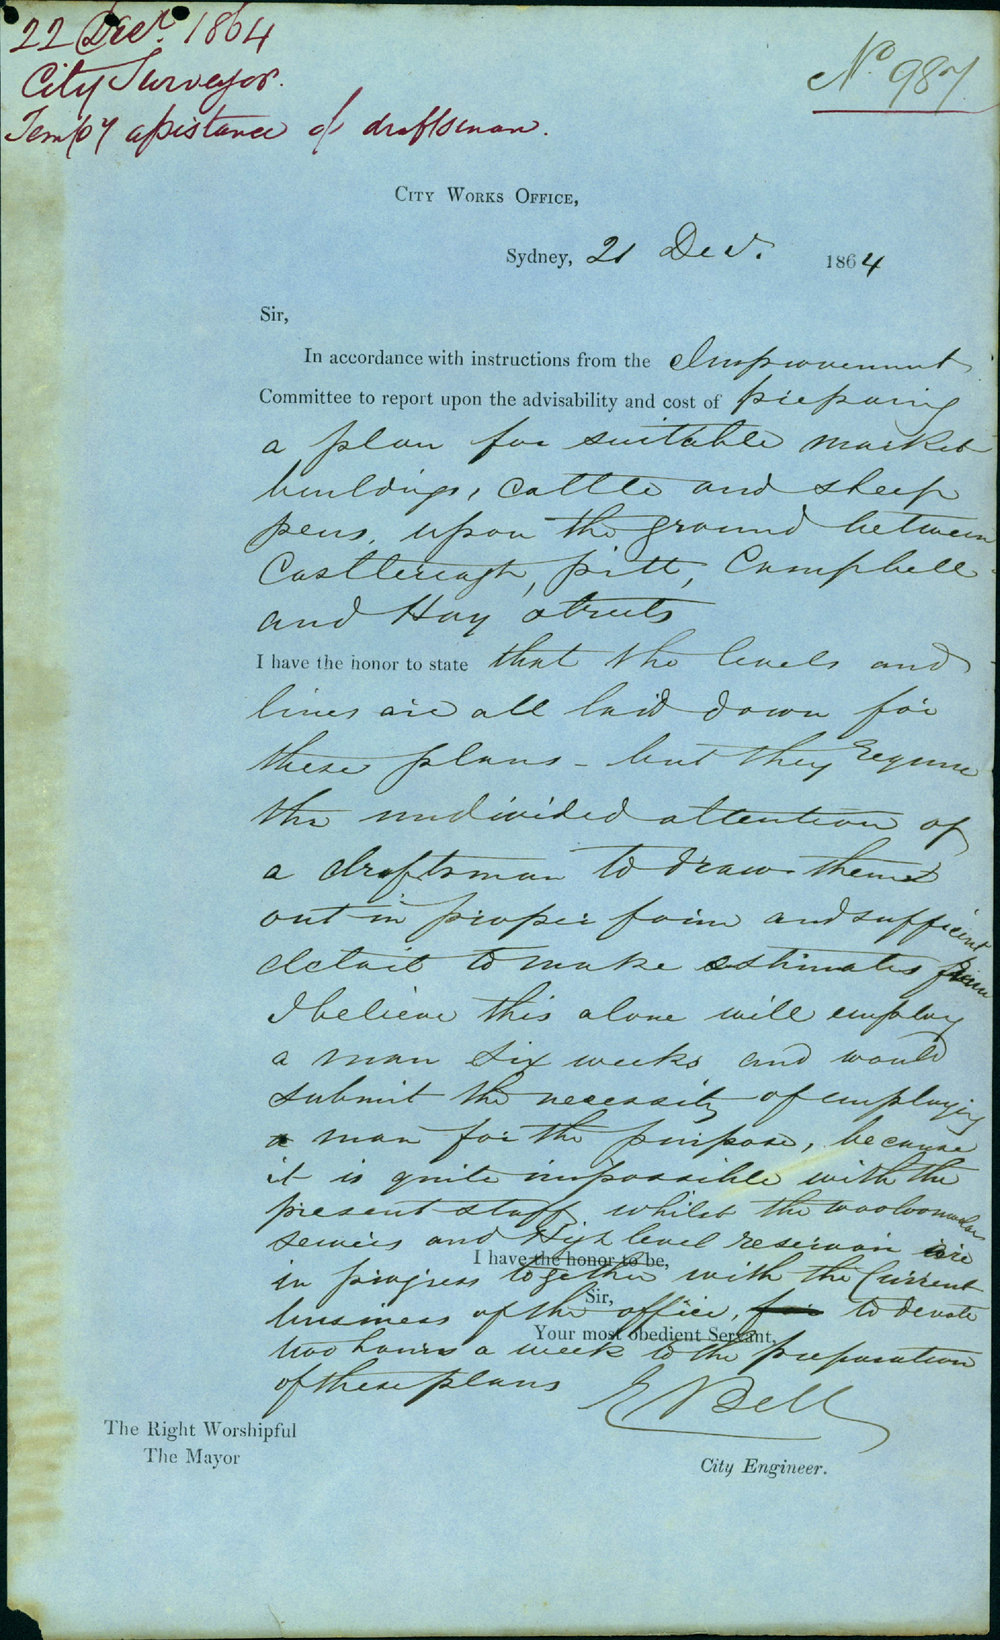 22 Decr. 1864
City Surveyor.
Tempy assistance of draftsman.
No 987
City Works Office,
Sydney, 21 Decr. 1864
Sir,
In accordance with instructions from the Improvement
Committee to report upon the advisability and cost of preparing
a plan for suitable market
buildings, cattle and sheep
pens, upon the ground between
Castlereagh, pitt, Campbell
and Hay streets
I have the honor to state that the levels and
lines are all laid down for
these plans - but they require
the undivided attention of
a draftsman to draw them
out in proper form and sufficient
detail to make estimates from
I believe this alone will employ
a man six weeks and would
submit the necessity of employing
a man for the purpose, because
it is quite impossible with the
present staff whilst the woolloomooloo
sewers and High level reservoir are
I have the honor to be,
in progress together with the Current
Sir,
business of the office, for to devote
Your most obedient Servant,
two hours a week to the preparation
of these plans
E Bell
The Right Worshipful
The Mayor
City Engineer.